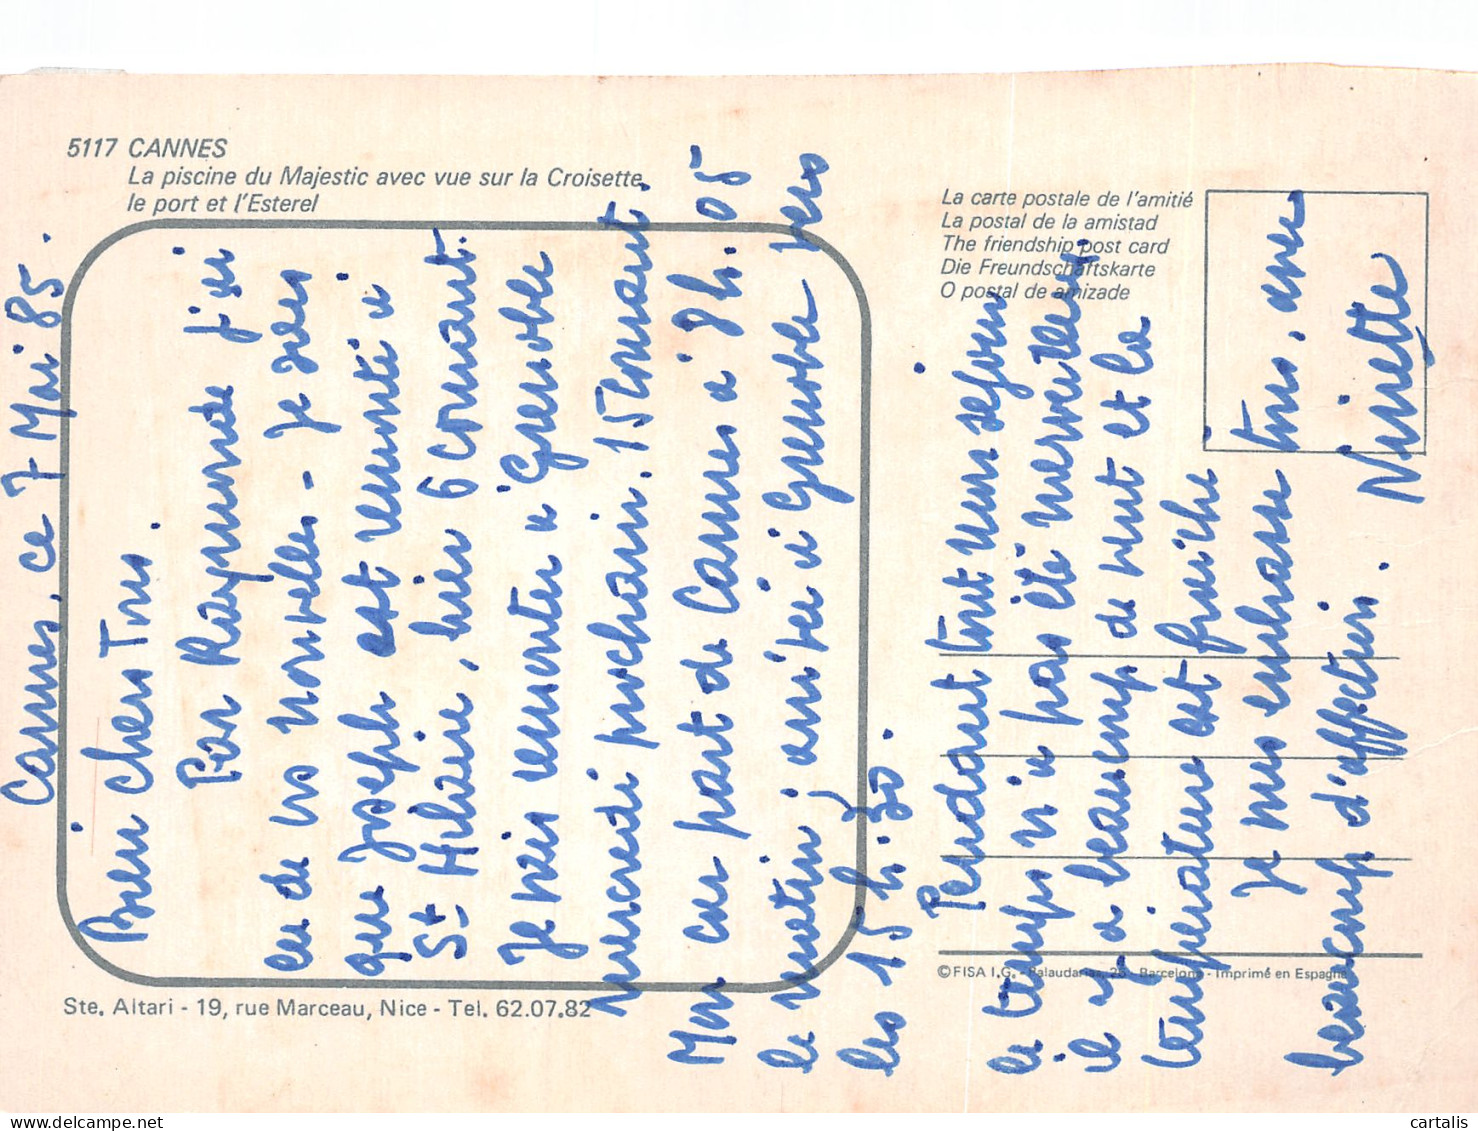 5117 CANNES
La piscine du Majestic avec vue sur la Croisette,
le port et l'Esterel
La carte postale de l'amitié
La postal de la amistad
The friendship post card
Die Freundschaftskarte
O postal de amizade
Ste. Altari - 19, rue Marceau, Nice - Tel. 62.07.82
© FISA I.G. - Palaudarias, 26 - Barcelona - Imprimé en Espagne
Cannes, ce 7 Mai 85.
Bien chers Tous.
Par Raymonde j'ai
eu de vos nouvelles - Je sais
que Joseph est remonté à
St Hilaire, hier 6 courant.
Je vais remonter à Grenoble
mercredi prochain. 15 courant.
Mon car part de Cannes à 8h.05
le matin ; arrivée à Grenoble vers
les 15h.30.
Pendant tout mon séjour
le temps n'a pas été merveilleux
il y a beaucoup de vent et la
température est fraîche
Je vous embrasse tous, avec
beaucoup d'affection.
Ninette
cartalis